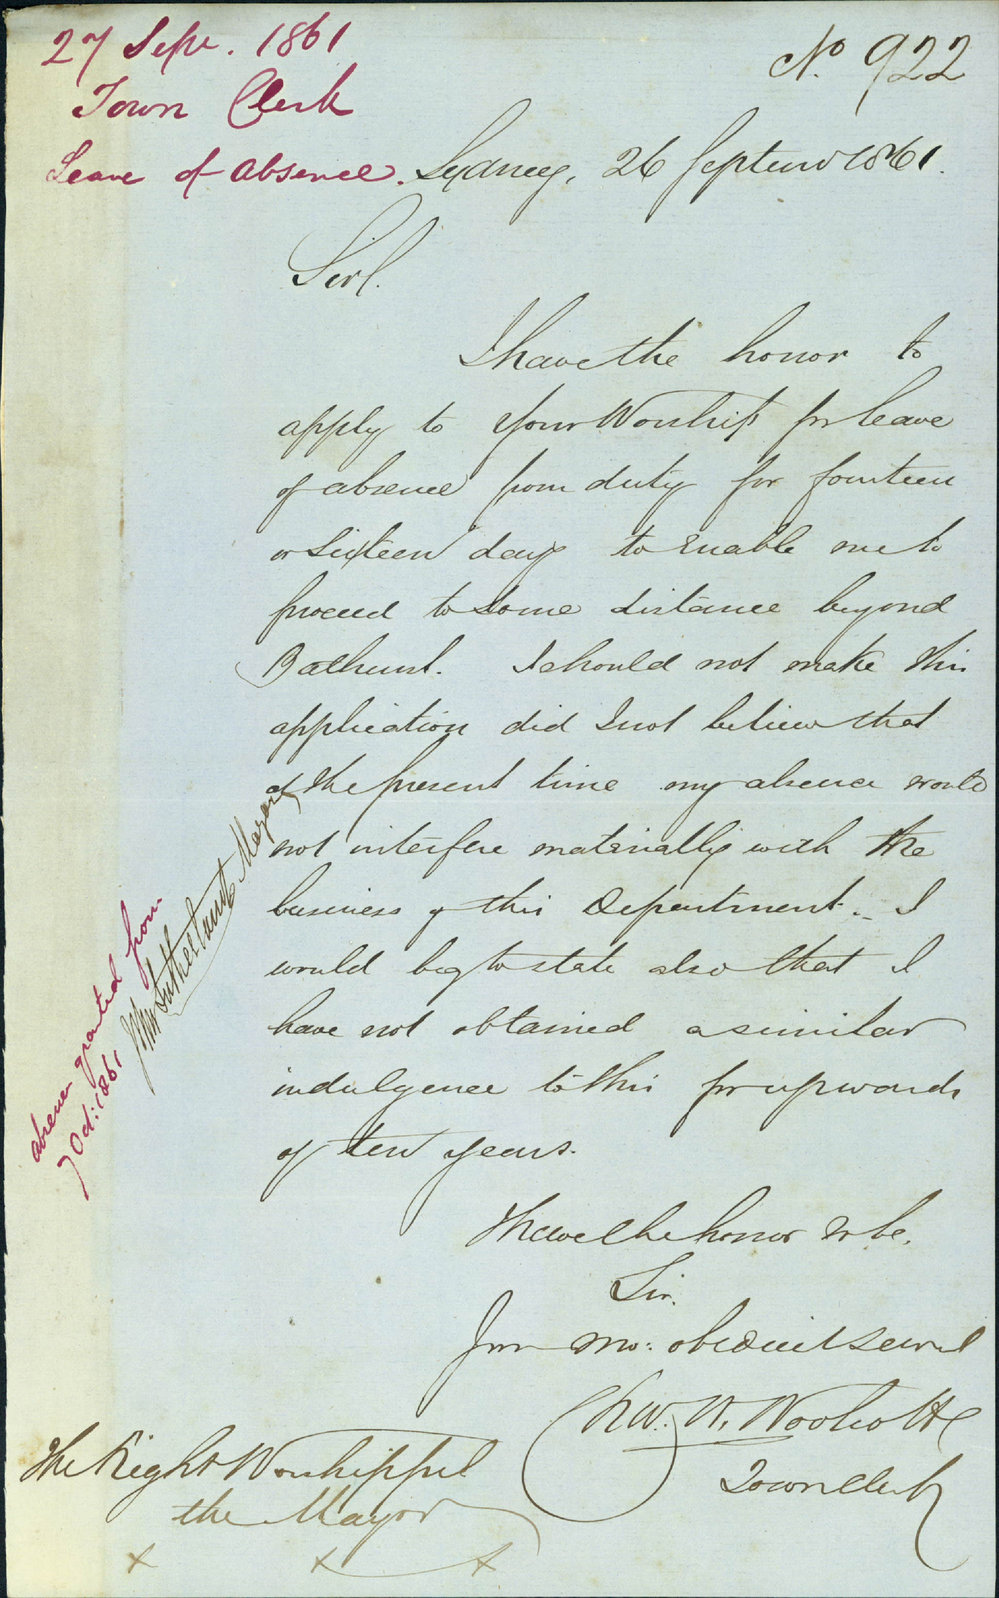 27 Sepr. 1861
Town Clerk
Leave of Absence.
No. 922
Sydney, 26 September 1861.
Sir.
I have the honor to
apply to Your Worship for leave
of absence from duty for fourteen
or sixteen days to enable me to
proceed to some distance beyond
Bathurst. I should not make this
application did I not believe that
at the present time my absence would
not interfere materially with the
business of this Department. I
would beg to state also that I
have not obtained a similar
indulgence to this for upwards
of ten years.
I have the honor to be,
Sir.
Your mo: obedient servt
Chas. H. Woolcott
Town Clerk
The Right Worshipful
the Mayor
x x x
absence granted from
7 Oct: 1861
John Sutherland Mayor